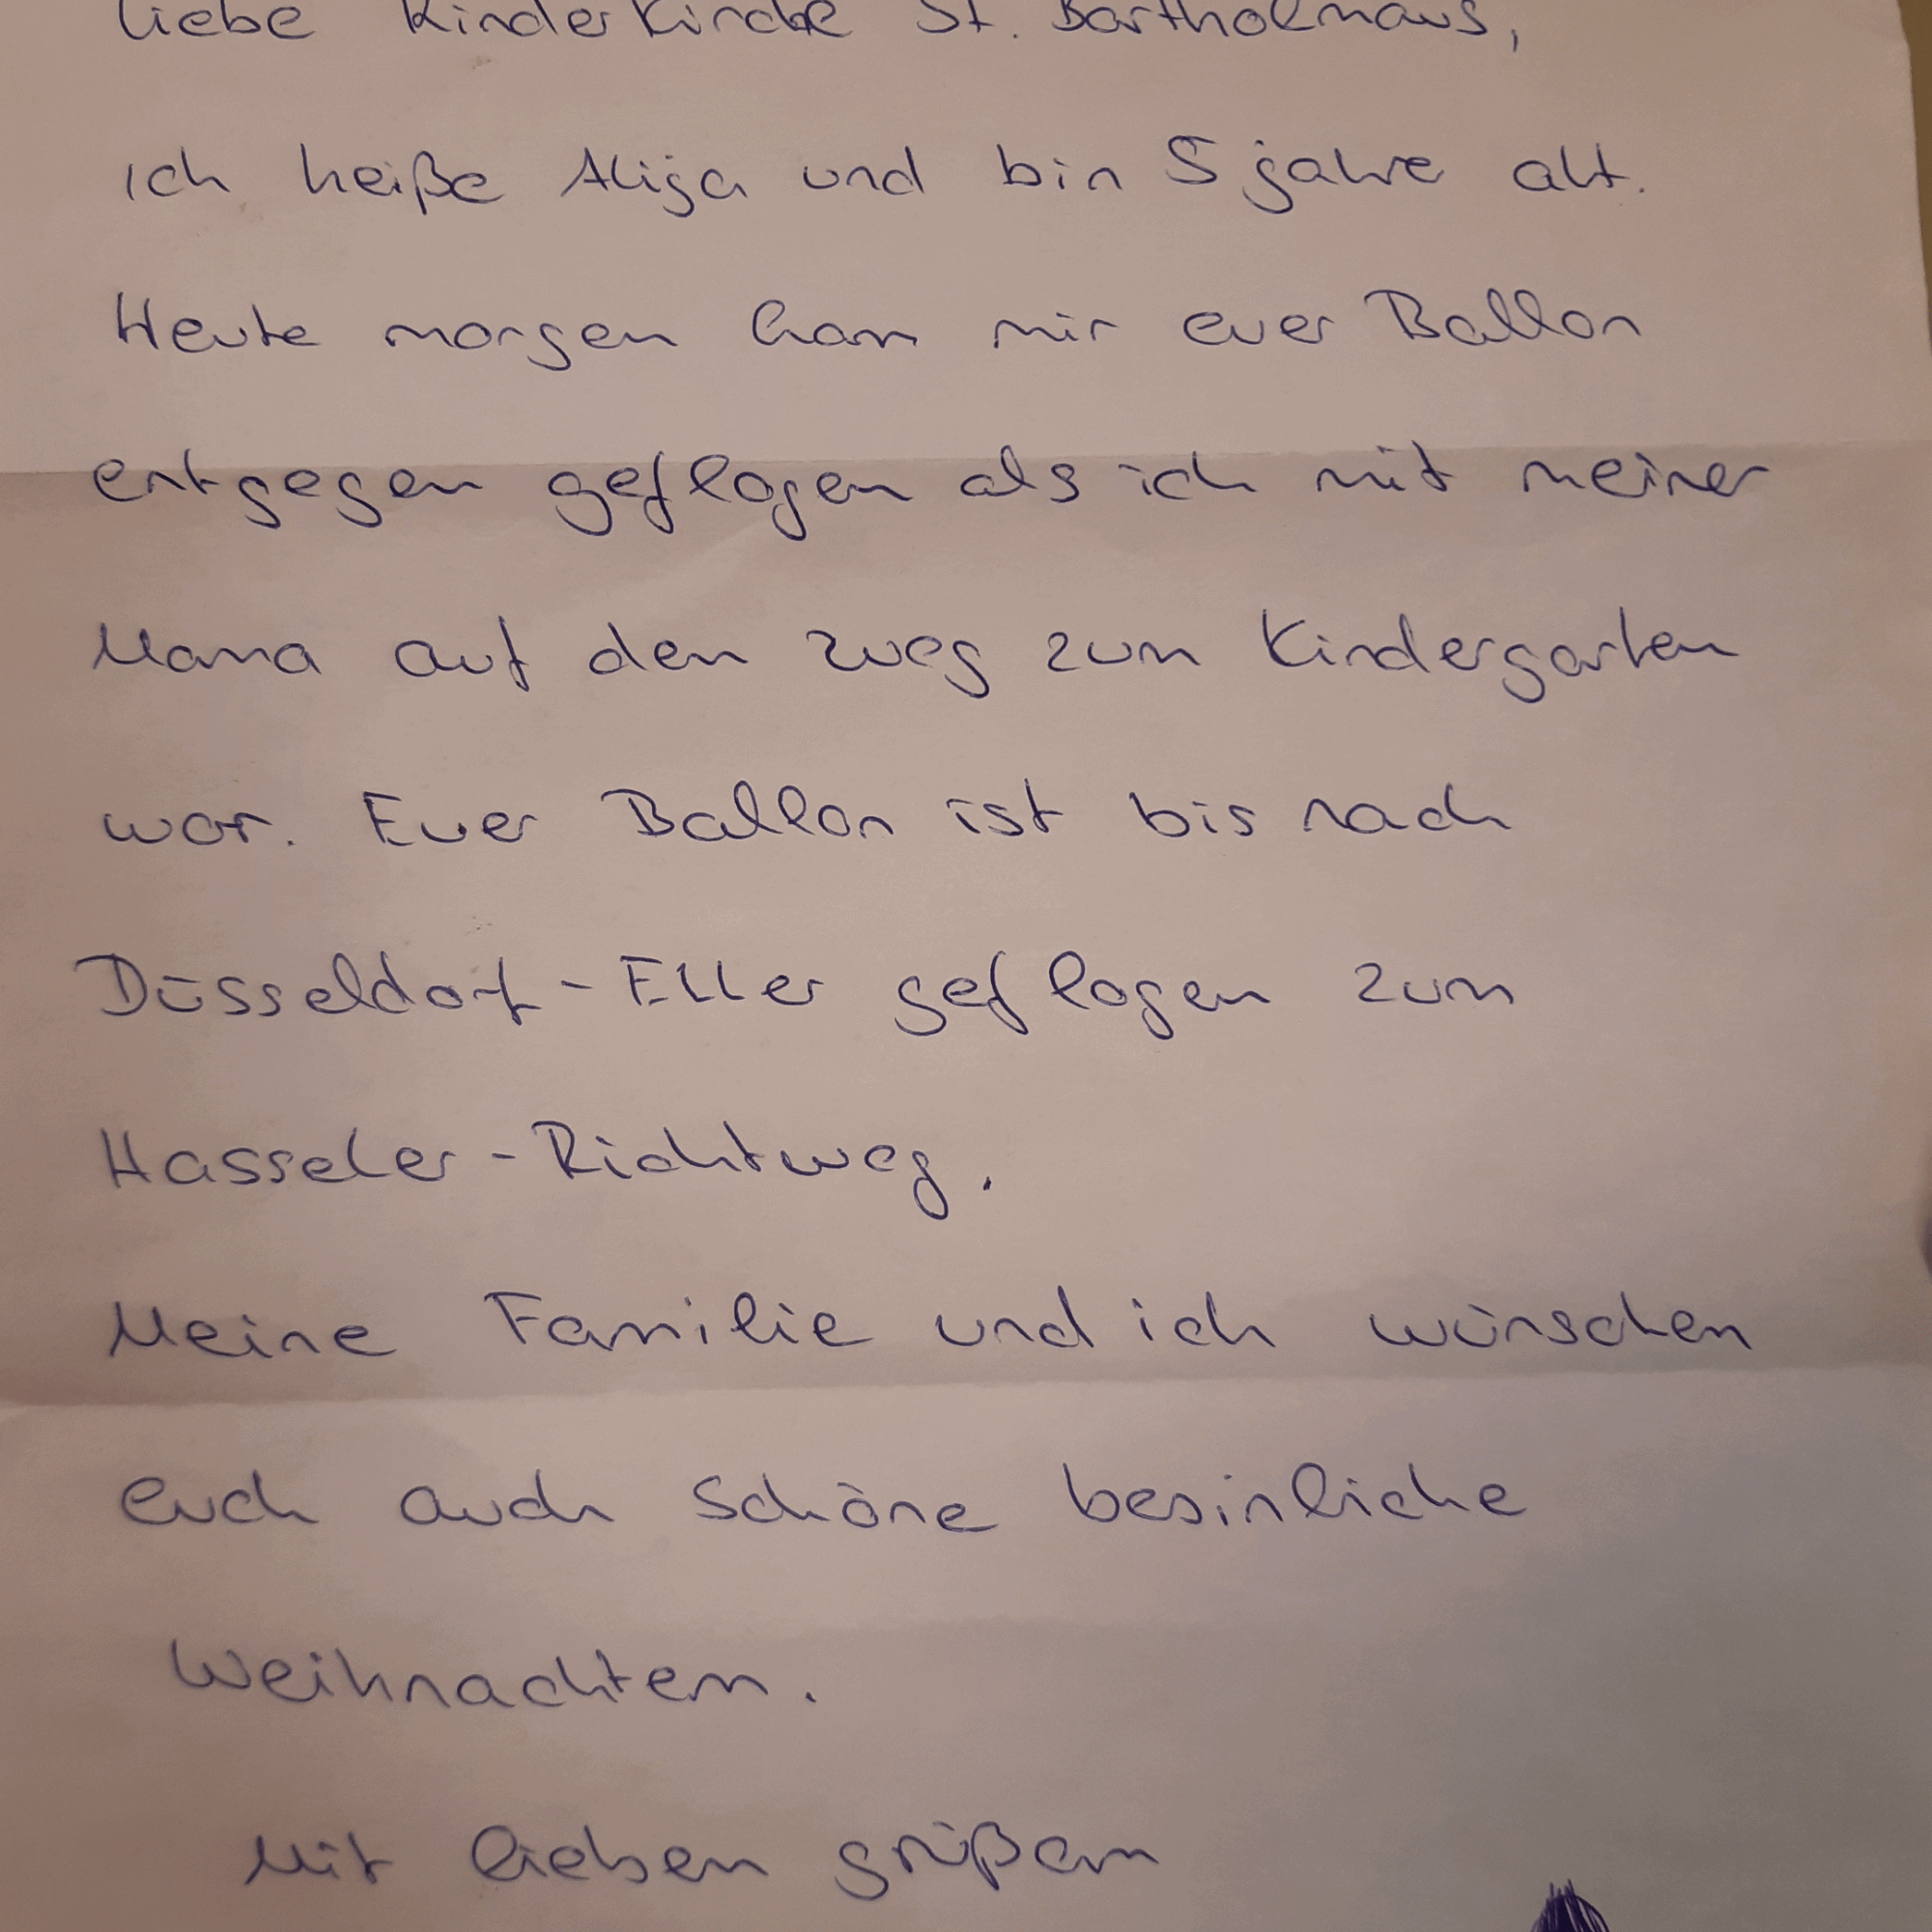 Liebe Kinderkirche St. Bartholmäus,
ich heiße Alija und bin 5 jahre alt.
Heute morgen kam mir euer Ballon
entgegen geflogen als ich mit meiner
Mama auf den Weg zum Kindergarten
war. Euer Ballon ist bis nach
Düsseldorf-Eller geflogen zum
Hasseler-Richtweg.
Meine Familie und ich wünschen
euch auch schöne besinliche
Weihnachten.
Mit lieben grüßen